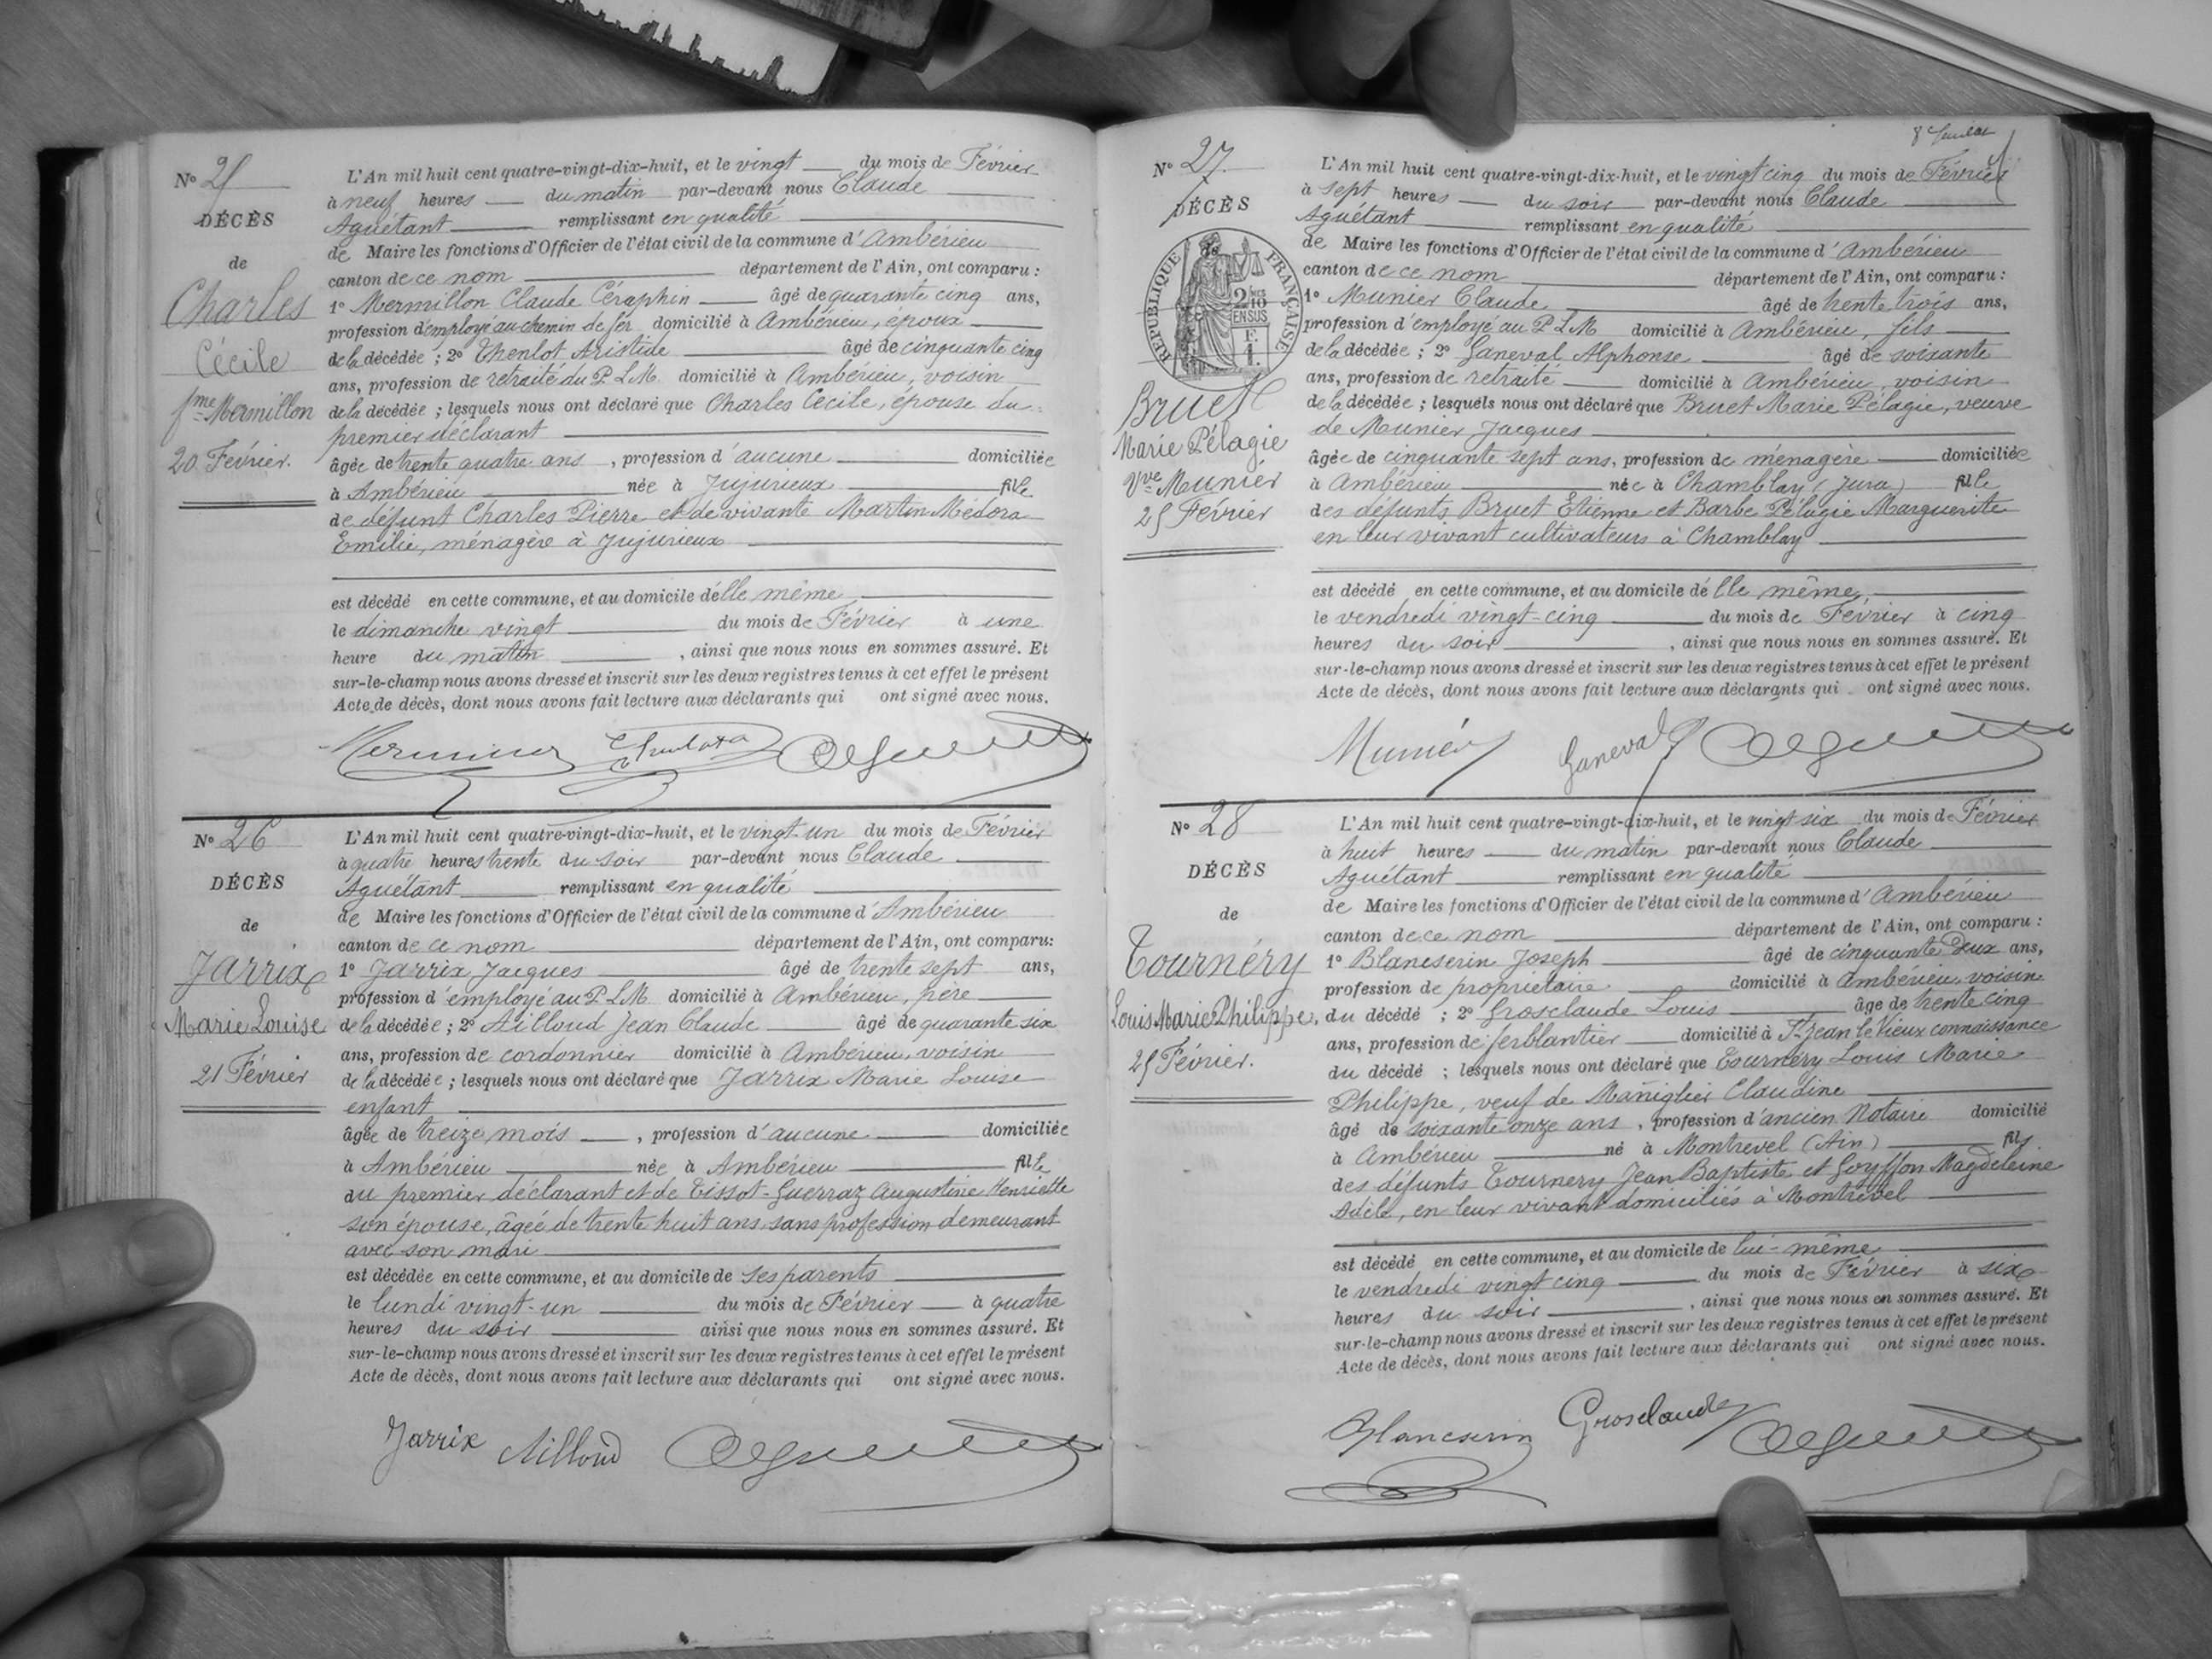 N° 25
DÉCÈS
de
Charles
Cécile
fme Mermillon
20 Février.
L'An mil huit cent quatre-vingt-dix-huit, et le vingt du mois de Février
à neuf heures du matin par-devant nous Claude
Aguétant remplissant en qualité
de Maire les fonctions d'Officier de l'état civil de la commune d'Ambérieu
canton de ce nom département de l'Ain, ont comparu :
1° Mermillon Claude Céraphin âgé de quarante cinq ans,
profession d'employé au chemin de fer domicilié à Ambérieu, époux
de la décédée ; 2° Thenlot Aristide âgé de cinquante cinq
ans, profession de retraité du P.L.M. domicilié à Ambérieu, voisin
de la décédée ; lesquels nous ont déclaré que Charles Cécile, épouse du
premier déclarant
âgée de trente quatre ans, profession d'aucune domiciliée
à Ambérieu née à Jujurieux fille
de défunt Charles Pierre et de vivante Martin Médora
Emilie, ménagère à Jujurieux
est décédé en cette commune, et au domicile d'elle même
le dimanche vingt du mois de Février à une
heure du matin, ainsi que nous nous en sommes assuré. Et
sur-le-champ nous avons dressé et inscrit sur les deux registres tenus à cet effet le présent
Acte de décès, dont nous avons fait lecture aux déclarants qui ont signé avec nous.
N° 26
DÉCÈS
de
Jarrix
Marie Louise
21 Février
L'An mil huit cent quatre-vingt-dix-huit, et le vingt-un du mois de Février
à quatre heures trente du soir par-devant nous Claude
Aguétant remplissant en qualité
de Maire les fonctions d'Officier de l'état civil de la commune d'Ambérieu
canton de ce nom département de l'Ain, ont comparu:
1° Jarrix Jacques âgé de trente sept ans,
profession d'employé au P.L.M domicilié à Ambérieu, père
de la décédée ; 2° Ailloud Jean Claude âgé de quarante six
ans, profession de cordonnier domicilié à Ambérieu, voisin
de la décédée ; lesquels nous ont déclaré que Jarrix Marie Louise
enfant
âgée de treize mois, profession d'aucune domiciliée
à Ambérieu née à Ambérieu fille
du premier déclarant et de Tissot-Guerraz Augustine Henriette
son épouse, âgée de trente huit ans sans profession demeurant
avec son mari
est décédée en cette commune, et au domicile de ses parents
le lundi vingt-un du mois de Février à quatre
heures du soir ainsi que nous nous en sommes assuré. Et
sur-le-champ nous avons dressé et inscrit sur les deux registres tenus à cet effet le présent
Acte de décès, dont nous avons fait lecture aux déclarants qui ont signé avec nous.
Jarrix Ailloud
N° 27.
DÉCÈS
RÉPUBLIQUE FRANÇAISE
2/10 EN SUS
Bruet
Marie Pélagie
Vve Munier
25 Février
L'An mil huit cent quatre-vingt-dix-huit, et le vingt cinq du mois de Février
à sept heures du soir par-devant nous Claude
Aguétant remplissant en qualité
de Maire les fonctions d'Officier de l'état civil de la commune d'Ambérieu
canton de ce nom département de l'Ain, ont comparu :
1° Munier Claude âgé de trente trois ans,
profession d'employé au P.L.M domicilié à Ambérieu, fils
de la décédée ; 2° Ganeval Alphonse âgé de soixante
ans, profession de retraité domicilié à Ambérieu, voisin
de la décédée ; lesquels nous ont déclaré que Bruet Marie Pélagie, veuve
de Munier Jacques
âgée de cinquante sept ans, profession de ménagère domiciliée
à Ambérieu née à Chamblay (Jura) fille
des défunts Bruet Etienne et Barbe Pélagie Marguerite
en leur vivant cultivateurs à Chamblay
est décédé en cette commune, et au domicile d'elle même
le vendredi vingt-cinq du mois de Février à cinq
heures du soir, ainsi que nous nous en sommes assuré. Et
sur-le-champ nous avons dressé et inscrit sur les deux registres tenus à cet effet le présent
Acte de décès, dont nous avons fait lecture aux déclarants qui ont signé avec nous.
Munier Ganeval
N° 28
DÉCÈS
de
Tournéry
Louis Marie Philippe.
25 Février.
L'An mil huit cent quatre-vingt-dix-huit, et le vingt six du mois de Février
à huit heures du matin par-devant nous Claude
Aguétant remplissant en qualité
de Maire les fonctions d'Officier de l'état civil de la commune d'Ambérieu
canton de ce nom département de l'Ain, ont comparu :
1° Blancserin Joseph âgé de cinquante deux ans,
profession de propriétaire domicilié à Ambérieu voisin
du décédé ; 2° Grosclaude Louis âgé de trente cinq
ans, profession de ferblantier domicilié à St Jean le Vieux connaissance
du décédé ; lesquels nous ont déclaré que Tournéry Louis Marie
Philippe, veuf de Maniglier Claudine
âgé de soixante onze ans, profession d'ancien Notaire domicilié
à Ambérieu né à Montrevel (Ain) fils
des défunts Tournery Jean Baptiste et Goyffon Magdeleine
Adèle, en leur vivant domiciliés à Montrevel
est décédé en cette commune, et au domicile de lui-même
le vendredi vingt cinq du mois de Février à six
heures du soir, ainsi que nous nous en sommes assuré. Et
sur-le-champ nous avons dressé et inscrit sur les deux registres tenus à cet effet le présent
Acte de décès, dont nous avons fait lecture aux déclarants qui ont signé avec nous.
Blancserin Grosclaude